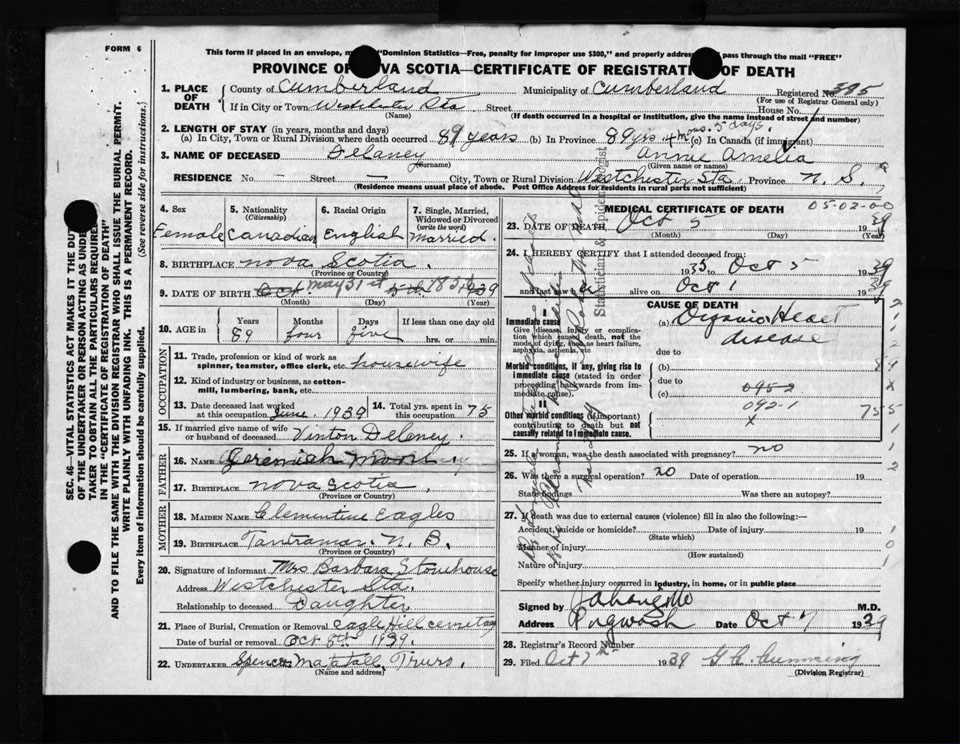 FORM 6
This form if placed in an envelope, "Dominion Statistics—Free, penalty for improper use $300," and properly address pass through the mail "FREE"
PROVINCE OF VA SCOTIA—CERTIFICATE OF REGISTRATI OF DEATH
1. PLACE OF DEATH
County of Cumberland Municipality of Cumberland Registered No. 395
(For use of Registrar General only)
If in City or Town Westchester Sta Street House No.
(Name) (If death occurred in a hospital or institution, give the name instead of street and number)
2. LENGTH OF STAY (in years, months and days)
(a) In City, Town or Rural Division where death occurred 89 years (b) In Province 89 yrs 4 mos. 5 days. (c) In Canada (if immigrant)
3. NAME OF DECEASED Delaney Annie Amelia
(Surname) (Given name or names)
RESIDENCE No. — Street — City, Town or Rural Division Westchester Sta. Province N. S.
(Residence means usual place of abode. Post Office Address for residents in rural parts not sufficient)
4. Sex Female
5. Nationality (Citizenship) Canadian
6. Racial Origin English
7. Single, Married, Widowed or Divorced (write the word) Married.
8. BIRTHPLACE Nova Scotia.
(Province or Country)
9. DATE OF BIRTH Oct May 31st 5th 1939
(Month) (Day) (Year)
10. AGE in Years 89 Months four Days five If less than one day old hrs. or min.
OCCUPATION
11. Trade, profession or kind of work as spinner, teamster, office clerk, etc. housewife
12. Kind of industry or business, as cotton-mill, lumbering, bank, etc.
13. Date deceased last worked at this occupation June, 1939
14. Total yrs. spent in this occupation 75
15. If married give name of wife or husband of deceased Vinton Delaney.
FATHER
16. NAME Jeremiah
17. BIRTHPLACE Nova Scotia.
(Province or Country)
MOTHER
18. MAIDEN NAME Clementine Eagles
19. BIRTHPLACE Tantramar N. B.
(Province or Country)
20. Signature of informant Mrs Barbara Stonehouse
Address Westchester Sta.
Relationship to deceased Daughter
21. Place of Burial, Cremation or Removal Eagle Hill cemetery
Date of burial or removal Oct 8th 1939.
22. UNDERTAKER Spencer Matatall, Truro.
(Name and address)
MEDICAL CERTIFICATE OF DEATH
05-02-00
23. DATE OF DEATH Oct 5 1939
(Month) (Day) (Year)
24. I HEREBY CERTIFY that I attended deceased from:
1935 to Oct 5 1939
and last saw alive on Oct 1 1939
CAUSE OF DEATH
Immediate cause
Give disease, injury or complication which caused death, not the mode of dying, such as heart failure, asphyxia, asthenia, etc
(a) Organic Heart disease
due to
Morbid conditions, if any, giving rise to immediate cause (stated in order proceeding backwards from immediate cause).
(b)
due to
(c) 095-2
Other morbid conditions (if important) contributing to death but not causally related to immediate cause.
092-1
x
755
25. If a woman, was the death associated with pregnancy? no
26. Was there a surgical operation? no Date of operation 19
State findings Was there an autopsy?
27. If death was due to external causes (violence) fill in also the following:—
Accident, suicide or homicide? Date of injury 19
(State which)
Manner of injury
(How sustained)
Nature of injury
Specify whether injury occurred in industry, in home, or in public place
Signed by M.D.
Address Pugwash Date Oct 7 1939
28. Registrar's Record Number
29. Filed Oct 7th 1939 Cumming
(Division Registrar)
SEC. 46—VITAL STATISTICS ACT MAKES IT THE DUT
OF THE UNDERTAKER OR PERSON ACTING AS UNDER-
TAKER TO OBTAIN ALL THE PARTICULARS REQUIRED
IN THE "CERTIFICATE OF REGISTRATION OF DEATH"
AND TO FILE THE SAME WITH THE DIVISION REGISTRAR WHO SHALL ISSUE THE BURIAL PERMIT.
WRITE PLAINLY WITH UNFADING INK. THIS IS A PERMANENT RECORD.
Every item of information should be carefully supplied. (See reverse side for instructions.)